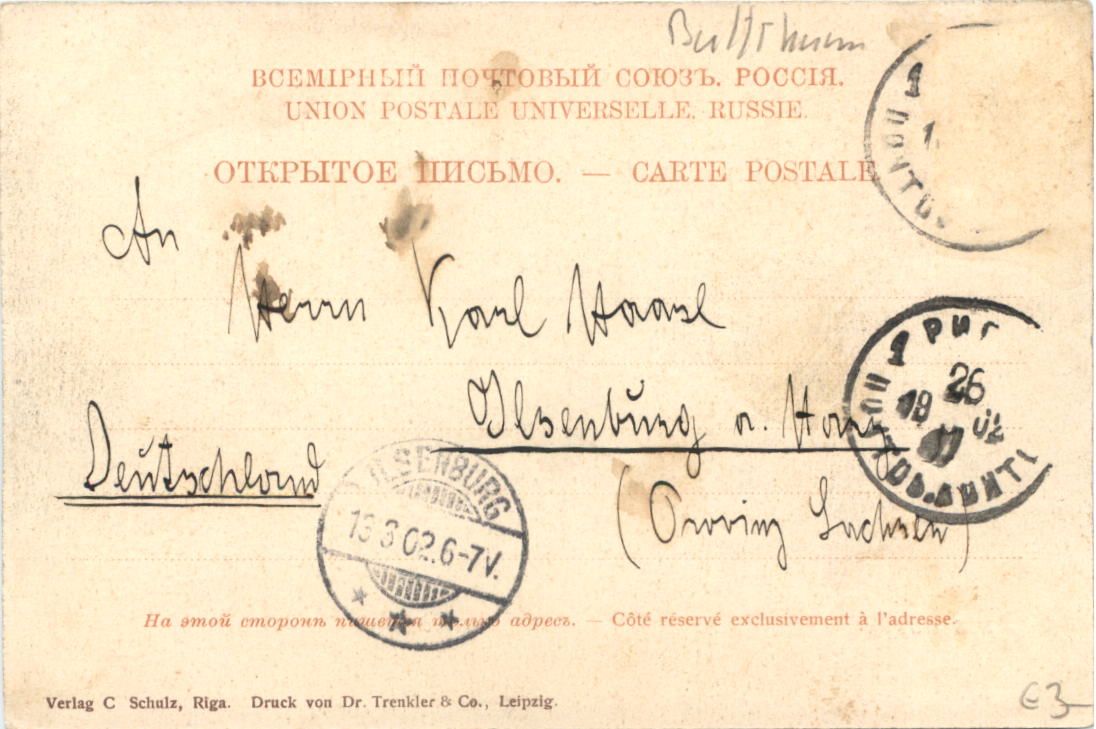 ВСЕМІРНЫЙ ПОЧТОВЫЙ СОЮЗЪ. РОССІЯ.
UNION POSTALE UNIVERSELLE. RUSSIE.
ОТКРЫТОЕ ПИСЬМО. — CARTE POSTALE
1
ПОЧТОВ
An
Herrn Karl
Ilsenburg a. Harz
Deutschland
(Provinz Sachsen)
1 РИГ
26
19 02
ILSENBURG
13 3 02. 6-7V.
На этой сторонѣ пишется только адресъ. — Côté réservé exclusivement à l'adresse.
Verlag C Schulz, Riga. Druck von Dr. Trenkler & Co., Leipzig.
€3